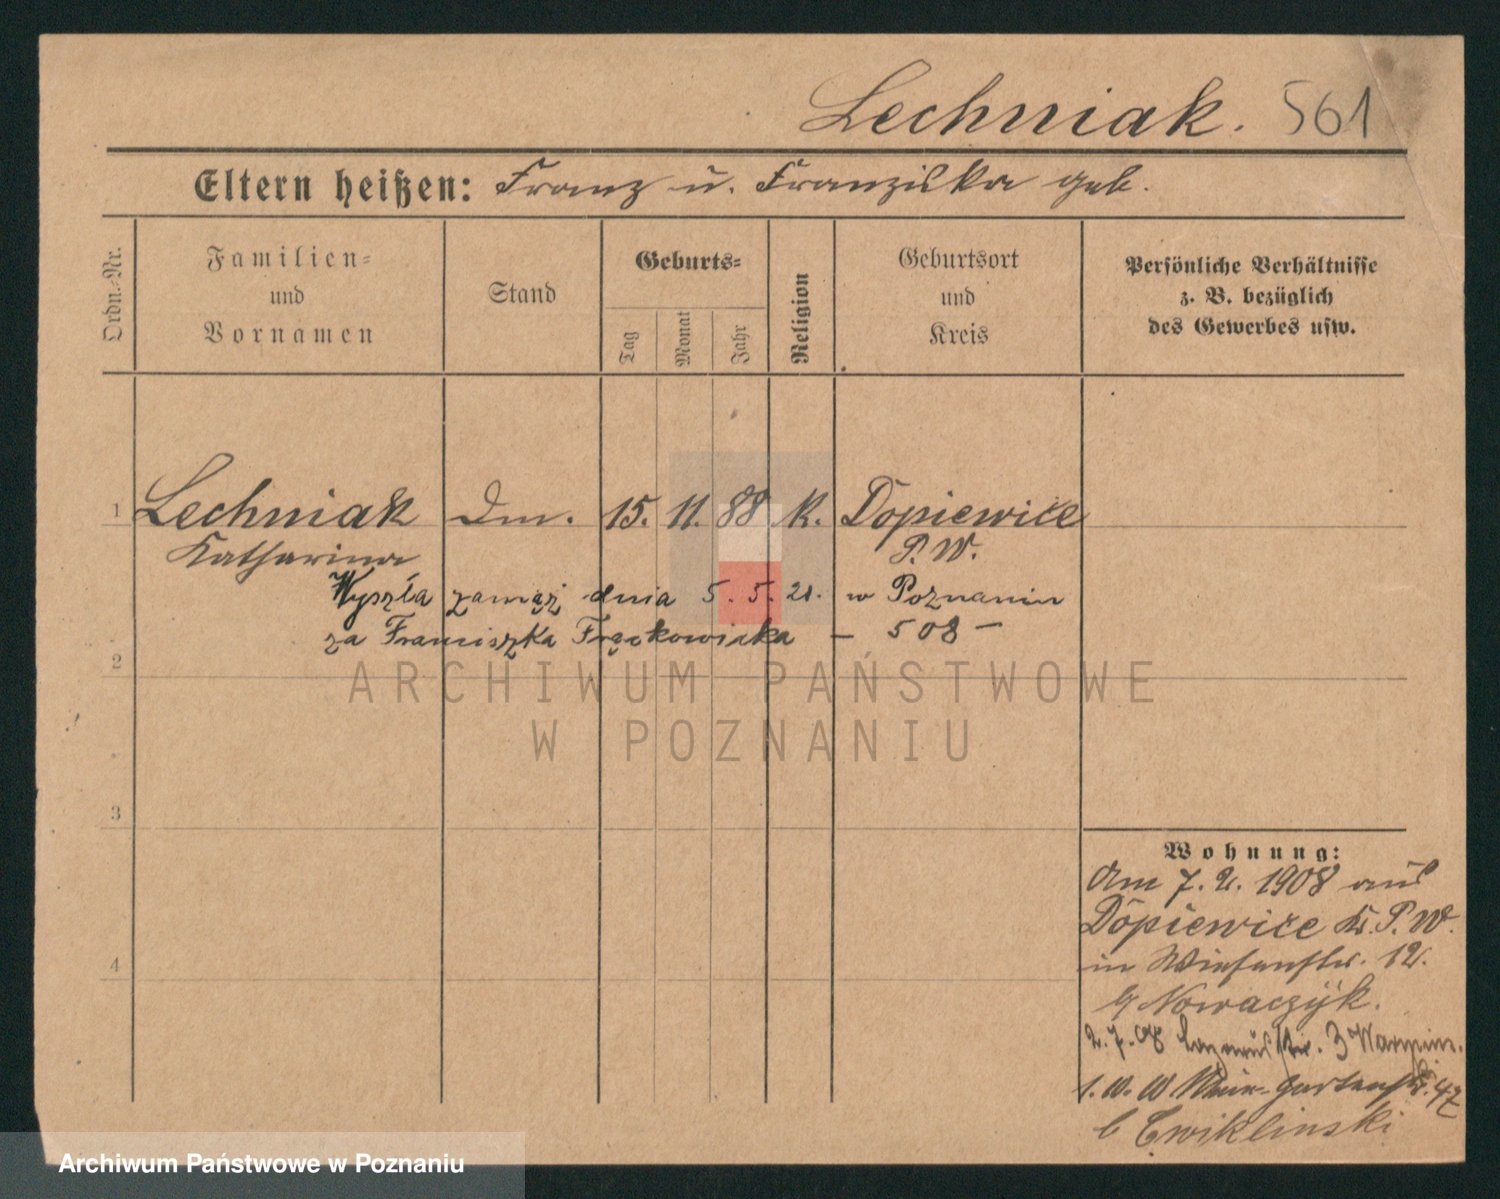 Lechniak. 561
Eltern heißen: Franz u. Franziska geb.
Ordn.-Nr.
Familien-
und
Vornamen
Stand
Geburts-
Tag
Monat
Jahr
Religion
Geburtsort
und
Kreis
Persönliche Verhältnisse
z. B. bezüglich
des Gewerbes usw.
1 Lechniak Dm. 15. 11. 88 K. Dopiewice
Katharina P. W.
Wyszła zamąż dnia 5. 5. 21. w Poznaniu
za Franciszka Frąckowiaka – 508 –
2
3
4
Wohnung:
Am 7. 2. 1908 aus
Dopiewice Kr. P. W.
in Wiesenstr. 12.
b/ Nowaczyk.
2. 7. 08 Lazarusstr. 3
1. 10. 10 Gartenstr. 4
b Cwiklinski
ARCHIWUM PAŃSTWOWE
W POZNANIU
Archiwum Państwowe w Poznaniu